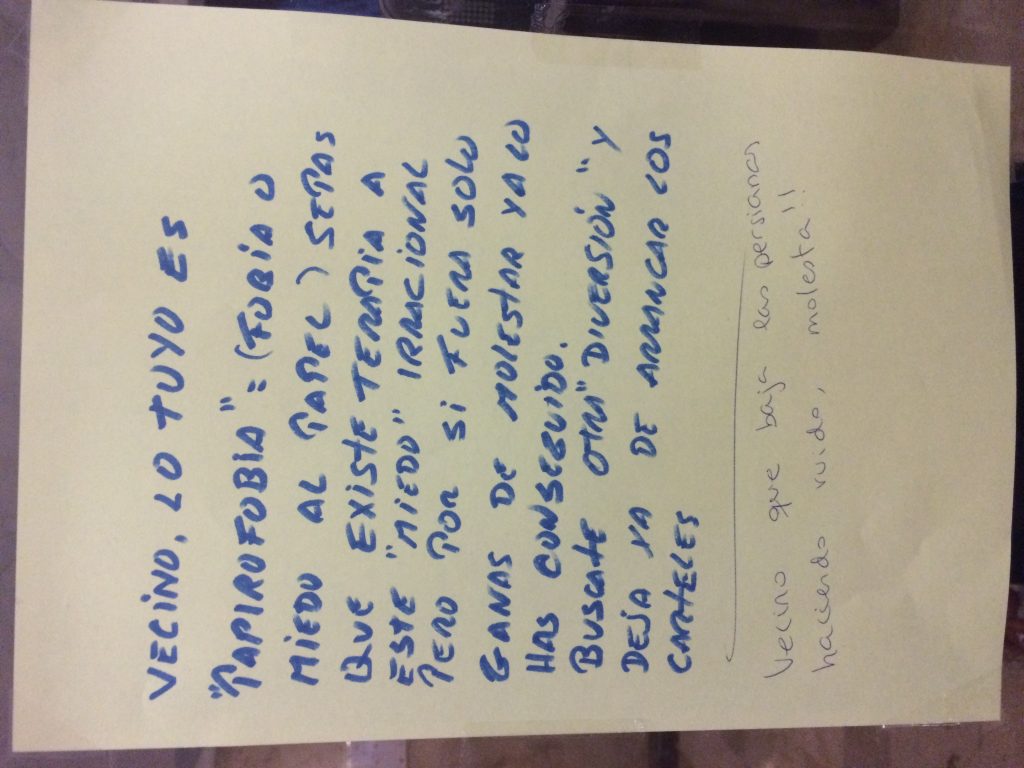 VECINO, LO TUYO ES
"PAPIROFOBIA"=(FOBIA O
MIEDO AL PAPEL) SEPAS
QUE EXISTE TERAPIA A
ESTE "MIEDO" IRRACIONAL
PERO POR SI FUERA SOLO
GANAS DE MOLESTAR YA LO
HAS CONSEGUIDO.
BUSCATE OTRA "DIVERSIÓN" Y
DEJA YA DE ARRANCAR LOS
CARTELES
Vecino que baja las persianas
haciendo ruido, molesta!!